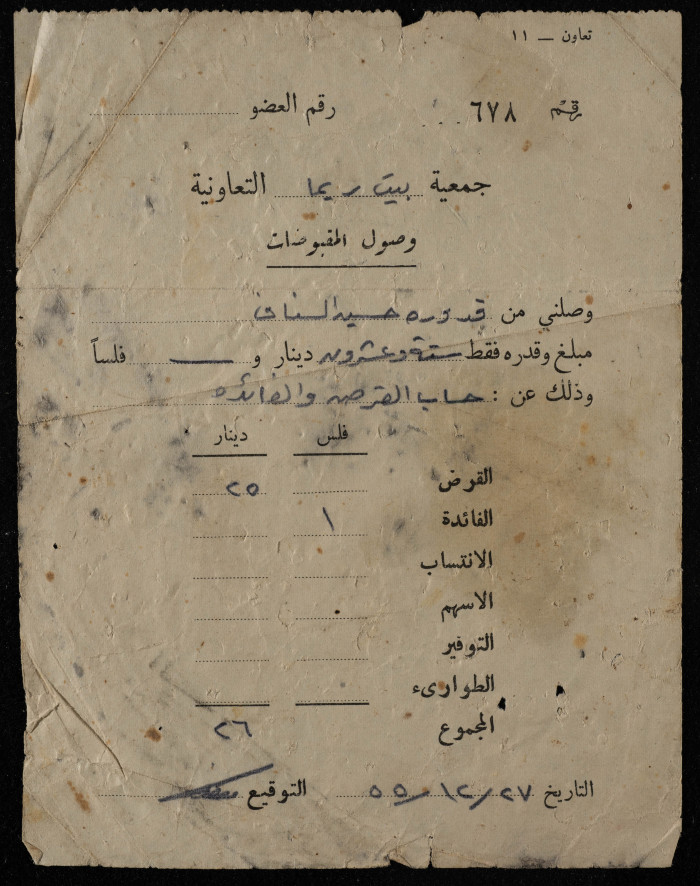 تعاون — ١١
رقم ٦٧٨ رقم العضو
جمعية بيت ريما التعاونية
وصول المقبوضات
وصلني من قدوره حسين
مبلغ وقدره فقط ستة وعشرون دينار و — فلساً
وذلك عن : حساب القرض والفائده
فلس دينار
القرض ٢٥
الفائدة ١
الانتساب
الاسهم
التوفير
الطوارىء
المجموع ٢٦
التاريخ ٢٧/١٢/٥٥ التوقيع